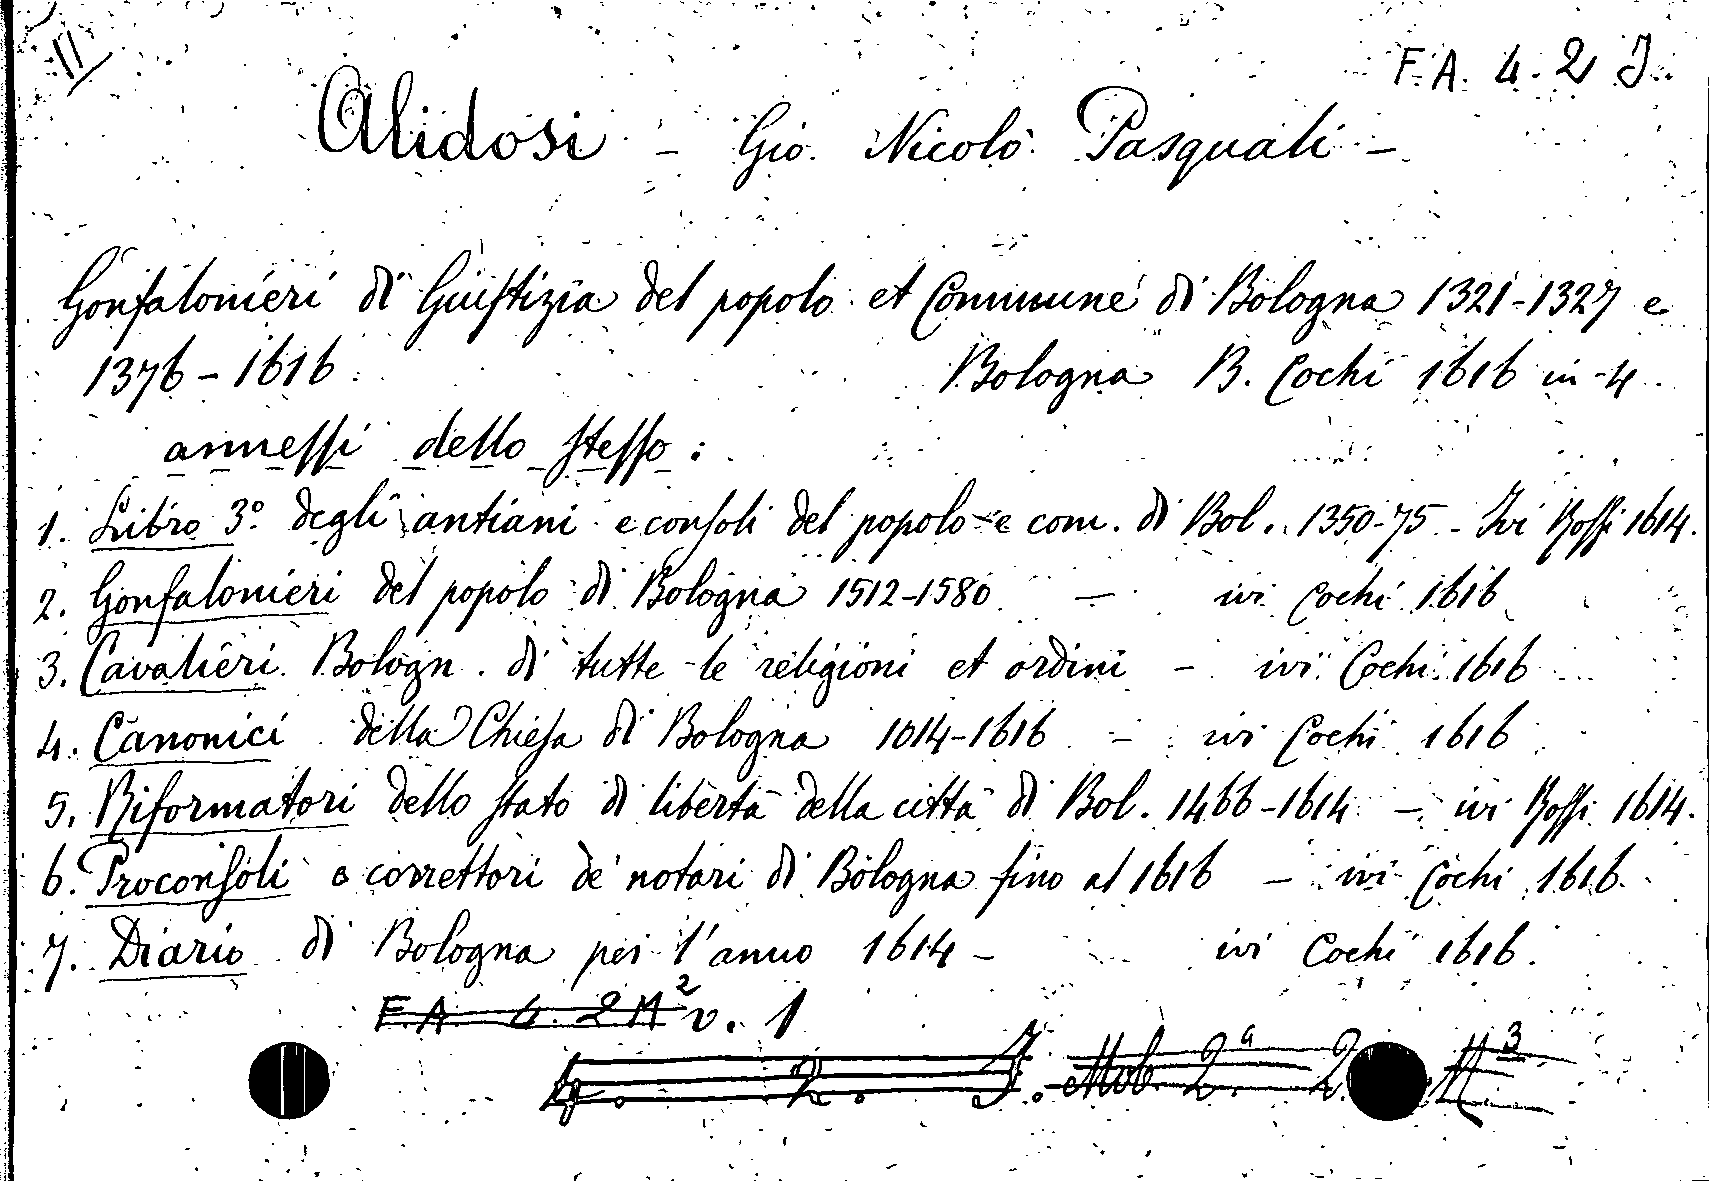 11
F. A. 4. 2 J.
Alidosi - Gio. Nicolò Pasquali -
Gonfalonieri di Giustizia del popolo et Commune di Bologna 1321-1327 e
1376-1616 Bologna B. Cochi 1616 in-4
annessi dello stesso :
1. Libro 3º degli antiani e consoli del popolo e com. di Bol. 1350-75 - Ivi Rossi 1614.
2. Gonfalonieri del popolo di Bologna 1512-1580 - ivi Cochi 1616
3. Cavalieri Bologn. di tutte le religioni et ordini - ivi Cochi 1616
4. Canonici della Chiesa di Bologna 1014-1616 - ivi Cochi 1616
5. Riformatori dello stato di libertà della città di Bol. 1466-1614 - ivi Rossi 1614.
6. Proconsoli e correttori de' notari di Bologna fino al 1616 - ivi Cochi 1616.
7. Diario di Bologna per l'anno 1614 - ivi Cochi 1616.
F. A. 4. 2 M² v. 1
4. 2. J. Mob. 2.ª 2 M³